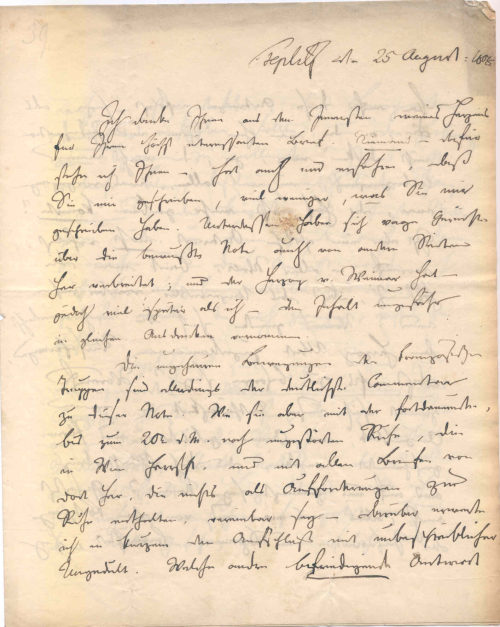 Teplitz den 25 August. 1805
Ich danke Ihnen aus dem Innersten meines Herzens
für Ihren höchst interessanten Brief. Niemand – dafür
stehe ich Ihnen – hat auch nur erfahren, daß
Sie mir geschrieben, viel weniger, was Sie mir
geschrieben haben. Unterdessen haben sich vage Gerüchte
über die bewußte Note auch von andern Seiten
her verbreitet; und der Herzog v. Weimar hat –
jedoch viel später als ich – den Inhalt ungefähr
in gleichen Ausdrücken vernommen.
Die ungeheuren Bewegungen der französischen
Truppen sind allerdings der deutlichste Commentar
zu dieser Note. Wie sie aber mit der fortdauernden,
bis zum 20t d. M. noch ungestörten Ruhe, die
in Wien herrscht, und mit allen Briefen von
dort her, die nichts als Aufforderungen zur
Ruhe enthalten, vereinbar sey – darüber erwarte
ich in kurzem den Aufschluß mit unbeschreiblicher
Ungeduld. Welche andre befriedigende Antwort